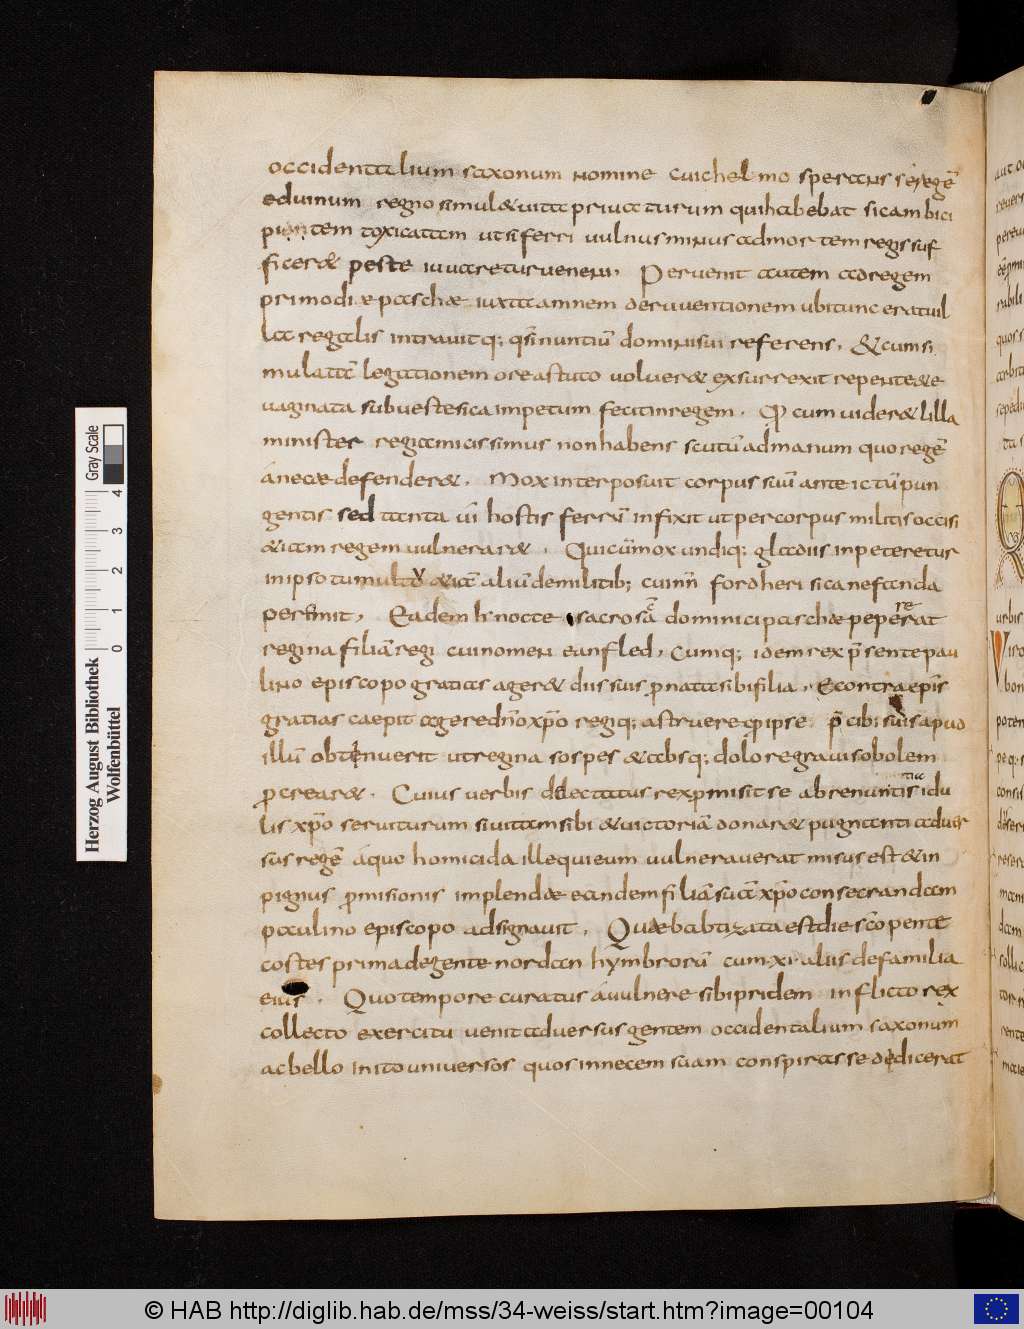 occidentalium saxonum nomine cuichelmo sperans se regē
eduinum regno simul & uita priuaturum qui habebat sicam bici
pitem toxicatam ut si ferri uulnus minus ad mortem regis suf
ficer& peste iuuaretur ueneni. Peruenit autem ad regem
primo die paschae iuxta amnem deruuentionem ubi tunc erat uil
la regalis intrauitq; q̄si nuntiū domini sui referens. & cum si
mulatā legationem ore astuto uoluer& exsurrexit repente & e
uaginata sub ueste sica impetum fecit in regem. Qd cum uider& lilla
minister regi amicissimus non habens scutū ad manum quo regē
a nece defender&. Mox interposuit corpus suū ante ictū pun
gentis sed tanta ui hostis ferrū infixit ut per corpus militis occisi
& iam regem uulnerar&. Qui cū mox undiq; gladiis inpeteretur
in ipso tumultu & iā aliū de militib; cui nn̄ fordheri sica nefanda
peremit. Eadem h nocte sacroscā dominici paschae pepererat
regina filiā regi cui nomen eanfled. Cumq; idem rex p̄sente pau
lino episcopo gratias ager& diis suis p nata sibi filia. E contra ep̄s
gratias caepit agere dn̄o xp̄o regiq; astruere qd ipse p̄cib; suis apud
illū obtinuerit ut regina sospes & absq; dolore graui sobolem
procrear&. Cuius uerbis delectatus rex pmisit se abrenuntiaturum idu
lis xp̄o seruiturum si uitam sibi & uictoriā donar& pugnanti aduer
sus regē a quo homicida ille qui eum uulnerauerat misus est & in
pignus promisionis implendae eandem filiā suā xp̄o consecrandam
paulino episcopo adsignauit. Quae babtizata est die sc̄o pente
costes prima de gente nordanhymbrorū cum xi aliis de familia
eius. Quo tempore curatus a uulnere sibi pridem inflicto rex
collecto exercitu uenit aduersus gentem occidentalium saxonum
ac bello inito uniuersos quos in necem suam conspirasse didicerat
Herzog August Bibliothek
Wolfenbüttel
0 1 2 3 4
Gray Scale
© HAB http://diglib.hab.de/mss/34-weiss/start.htm?image=00104